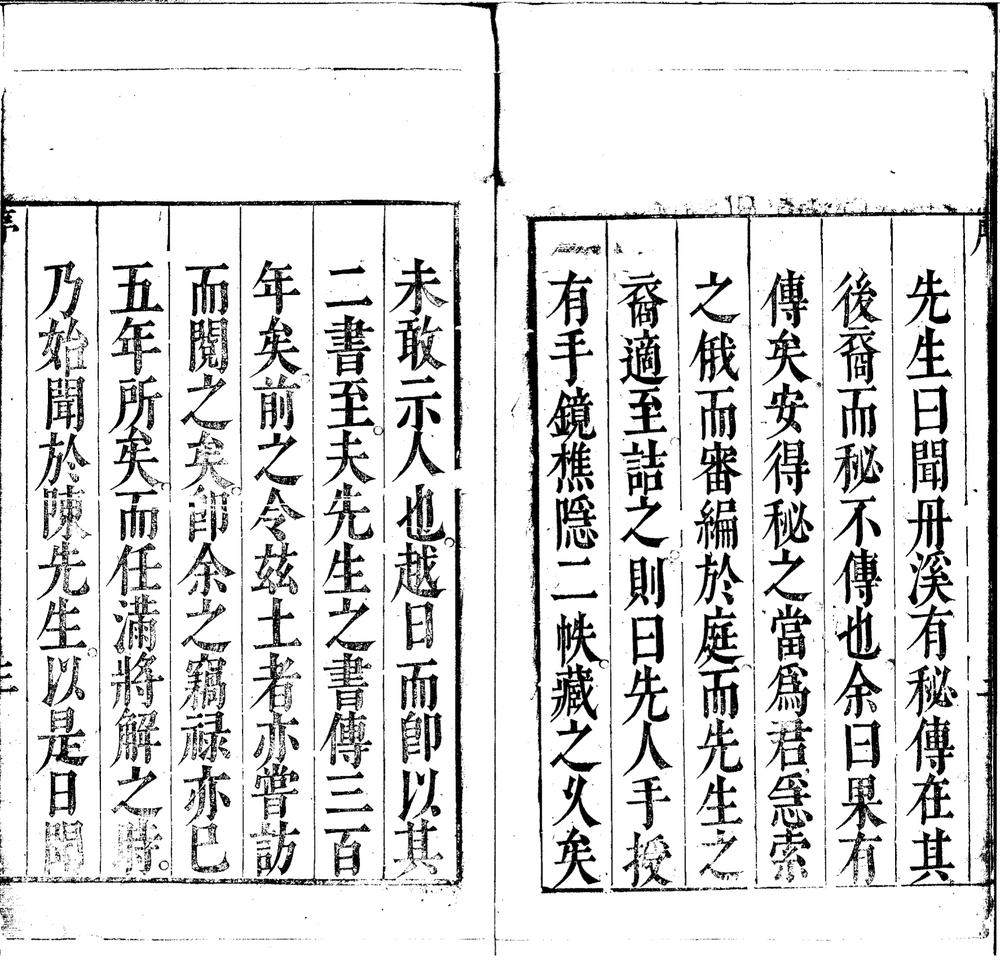 先生曰聞丹溪有秘傳在其
後裔而秘不傳也余曰果有
傳矣安得秘之當爲君急索
之俄而審編於庭而先生之
裔適至詰之則曰先人手授
有手鏡樵隱二帙藏之久矣
未敢示人也越日而卽以其
二書至夫先生之書傳三百
年矣前之令茲土者亦嘗訪
而閱之矣卽余之竊祿亦已
五年所矣而任滿將解之時
乃始聞於陳先生以是日聞